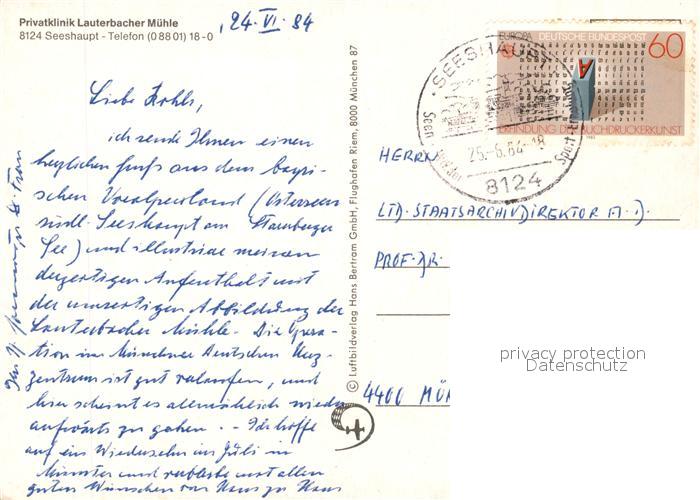 Privatklinik Lauterbacher Mühle
8124 Seeshaupt - Telefon (0 88 01) 18-0
, 24. VI. 84
Liebe Kohls,
ich sende Ihnen einen
herzlichen Gruß aus dem bayri-
schen Voralpenland (Osterseen
südl. Seeshaupt am Starnberger
See) und illustriere meinen
derzeitigen Aufenthalt mit
der umseitigen Abbildung der
Lauterbacher Mühle. Die Opera-
tion im Münchner Deutschen Herz-
zentrum ist gut verlaufen, und
hier scheint es allmählich wieder
aufwärts zu gehen. - Ich hoffe
auf ein Wiedersehn im Juli in
Münster und verbleibe mit allen
guten Wünschen von Haus zu Haus
Ihr
& Frau
© Luftbildverlag Hans Bertram GmbH, Flughafen Riem, 8000 München 87
EUROPA DEUTSCHE BUNDESPOST 60
A
ERFINDUNG DER BUCHDRUCKERKUNST
1983
SEESHAUPT
25.-6.84-18
8124
HERRN
LTD. STAATSARCHIVDIREKTOR A. D.
PROF. DR.
4400 MÜN
privacy protection
Datenschutz